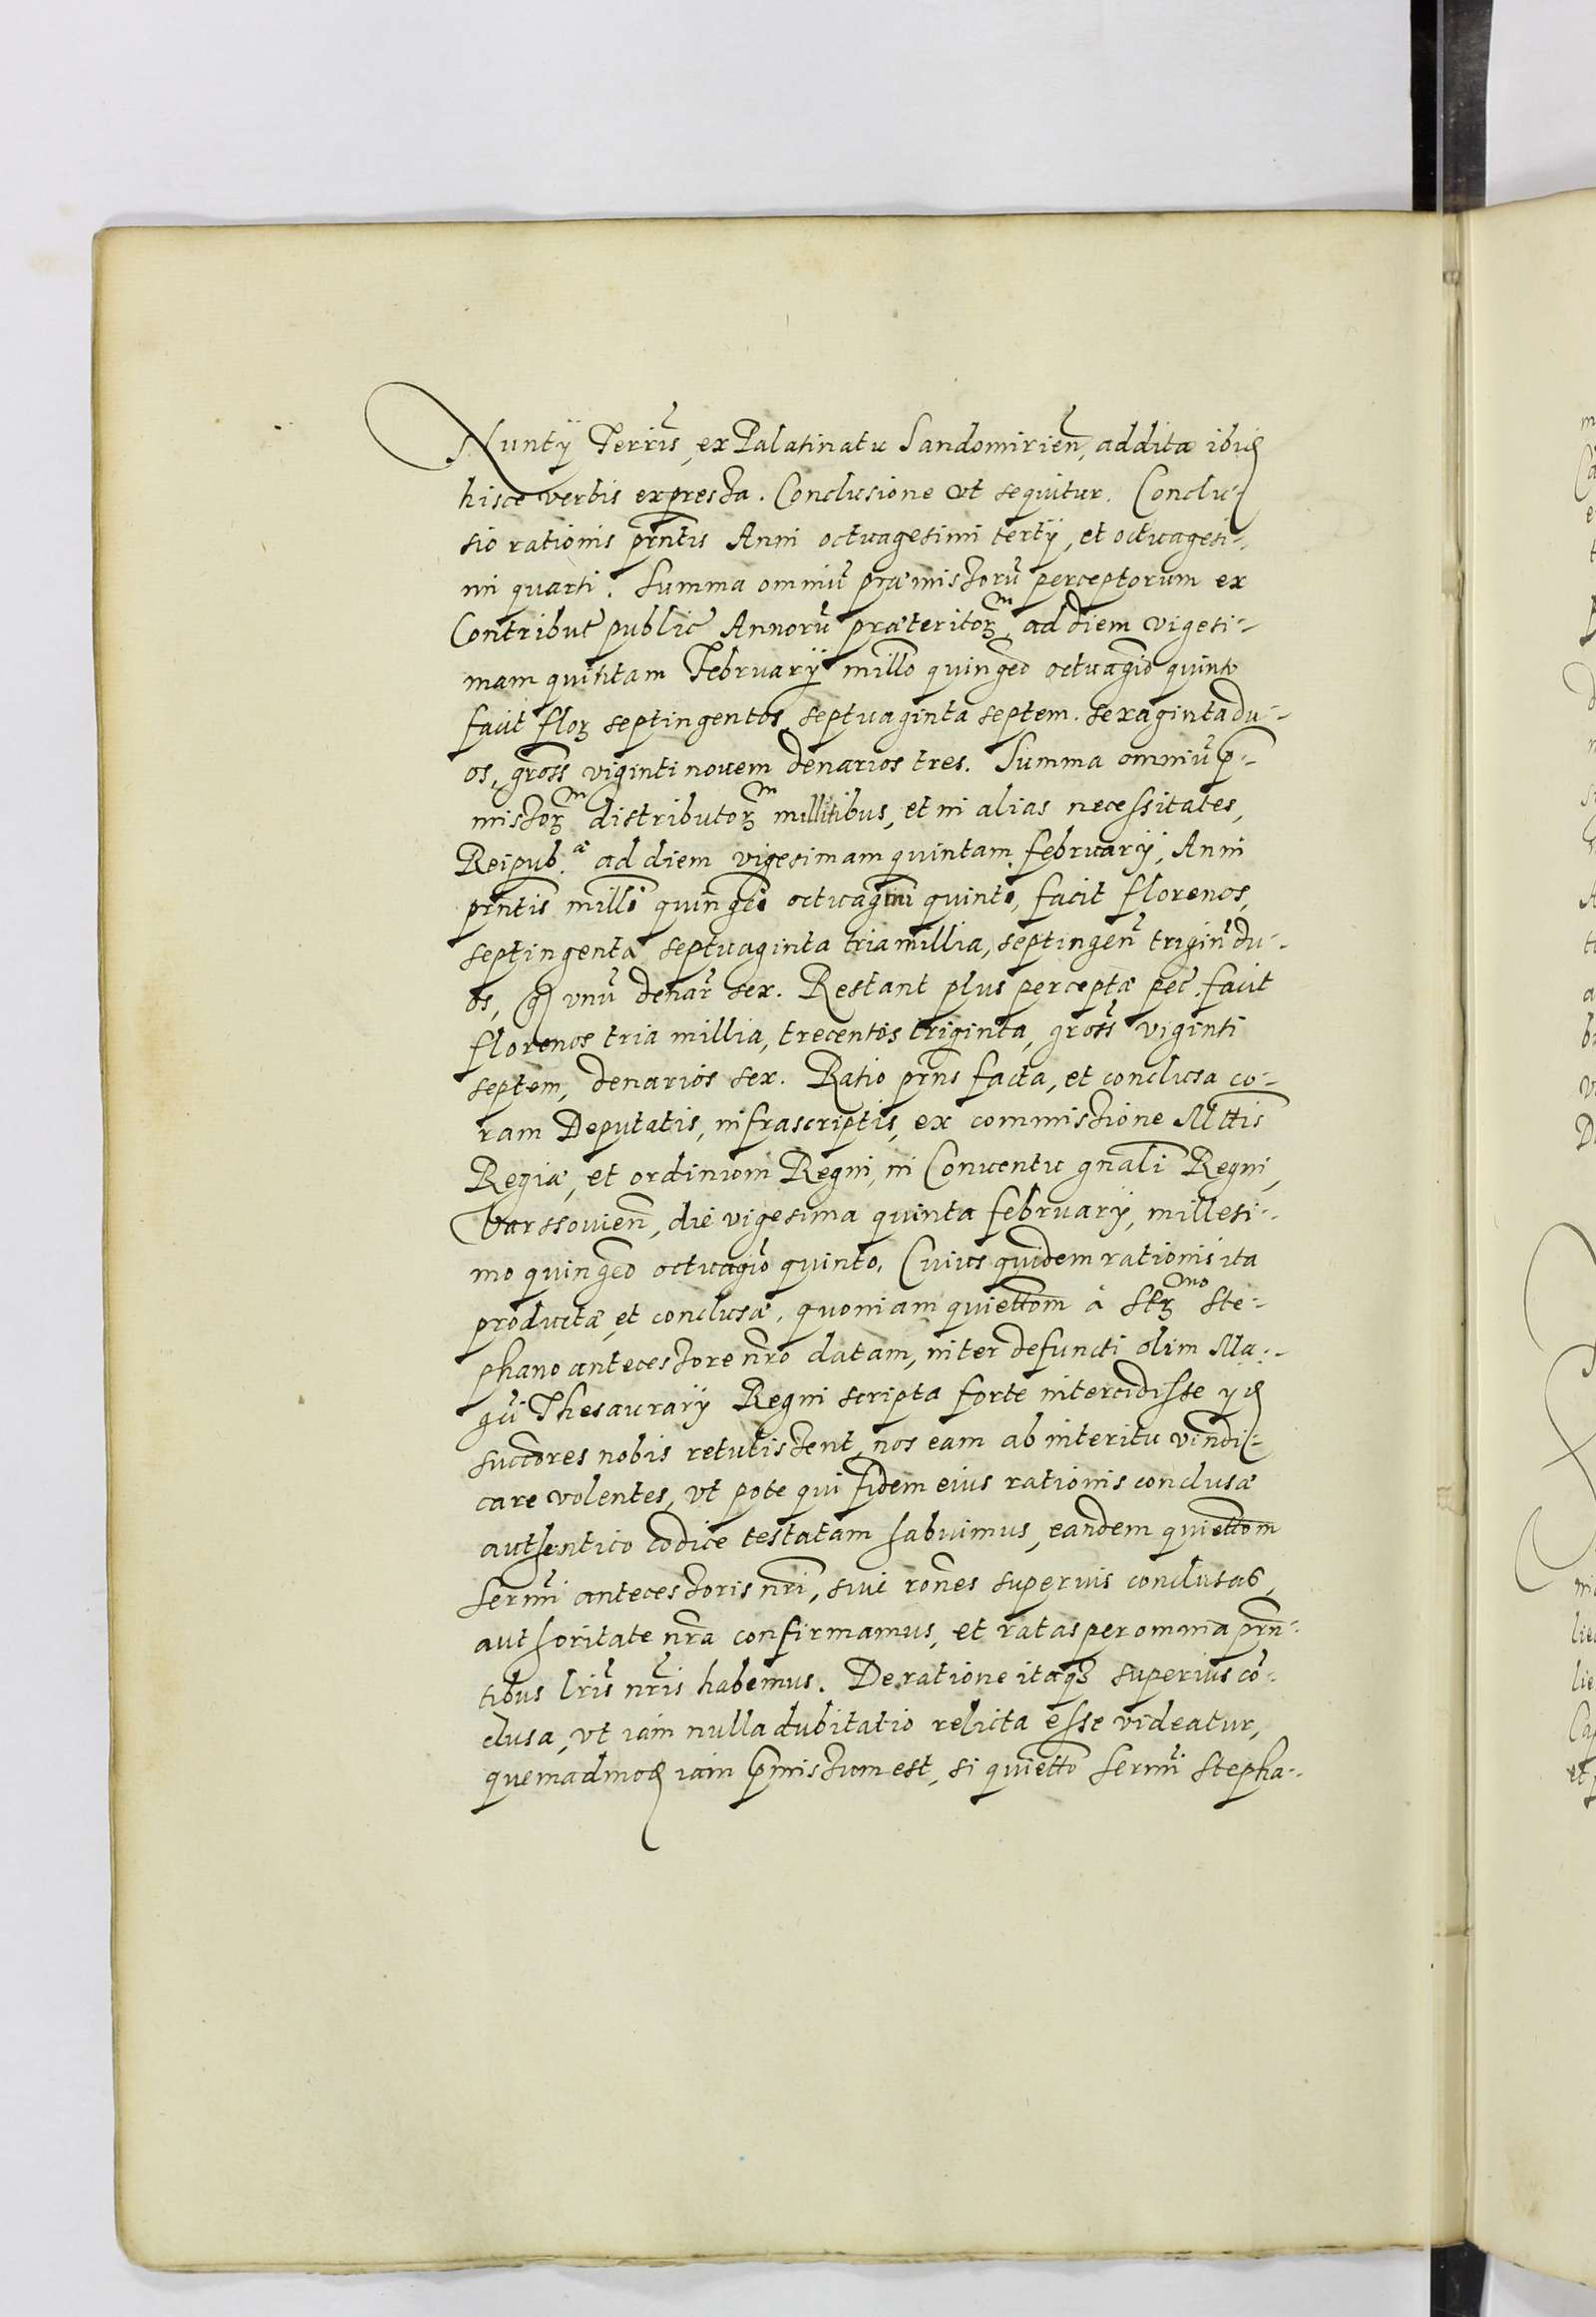 Nuntÿ Terris̃, ex Palatinatu Sandomirien̄, addita ibid
hisce verbis expressa. Conclusione vt sequitur. Conclu-
sio rationis prn̄tis Anni octuagesimi tertÿ, et octuagesi-
mi quarti. Summa omniū præmissorū perceptorum ex
Contribut̃ public̃ Annorū præteritorꝫ m, ad diem vigesi-
mam quintam Februarÿ mill̄o quingēo octuagīo quinto
facit florꝫ septingentos septuaginta septem. sexaginta du-
os, gross̄ viginti nouem denarios tres. Summa omniū p̄-
missorꝫ m distributorꝫ m millitibus, et in alias necessitates,
Reipub. æ ad diem vigesimam quintam februarÿ, Anni
prn̄tis mill̄i quingēi octuagīmi quinto, facit florenos,
septingenta septuaginta tria millia, septingen̄ trigin̄ du-
os, g vnū denar̃ sex. Restant plus perceptæ pec̃. facit
florenos tria millia, trecentos triginta, gross̃ viginti
septem, denarios sex. Ratio prn̄s facta, et conclusa co-
ram Deputatis, infrascriptis, ex commissione Mttis
Regiæ, et ordinum Regni, in Conuentu gn̄ali Regni,
Varssouien̄, die vigesima quinta februarÿ, millesi-
mo quingēo octuagīo quinto, Cuius quidem rationis ita
productæ, et conclusæ, quoniam quiettōm à Serꝫ mo Ste-
phano antecessore nr̄o datam, inter defuncti olim Ma-
gci Thesaurarÿ Regni scripta forte intercidisse yd
succōres nobis retulissent, nos eam ab interitu vindi-
care volentes, vt pote qui fidem eius rationis conclusæ
authentico codice testatam habuimus, eandem quiettōm
Sermi antecessoris nr̄i, siue ron̄es superius conclusas,
authoritate nr̄a confirmamus, et ratas per omnia prn̄-
tibus lr̄is nr̄is habemus. De ratione itaqꝫ superius cō-
clusa, vt iam nulla dubitatio relicta esse videatur,
quemadmod iam p̄missum est, si quiettō Sermi Stepha-